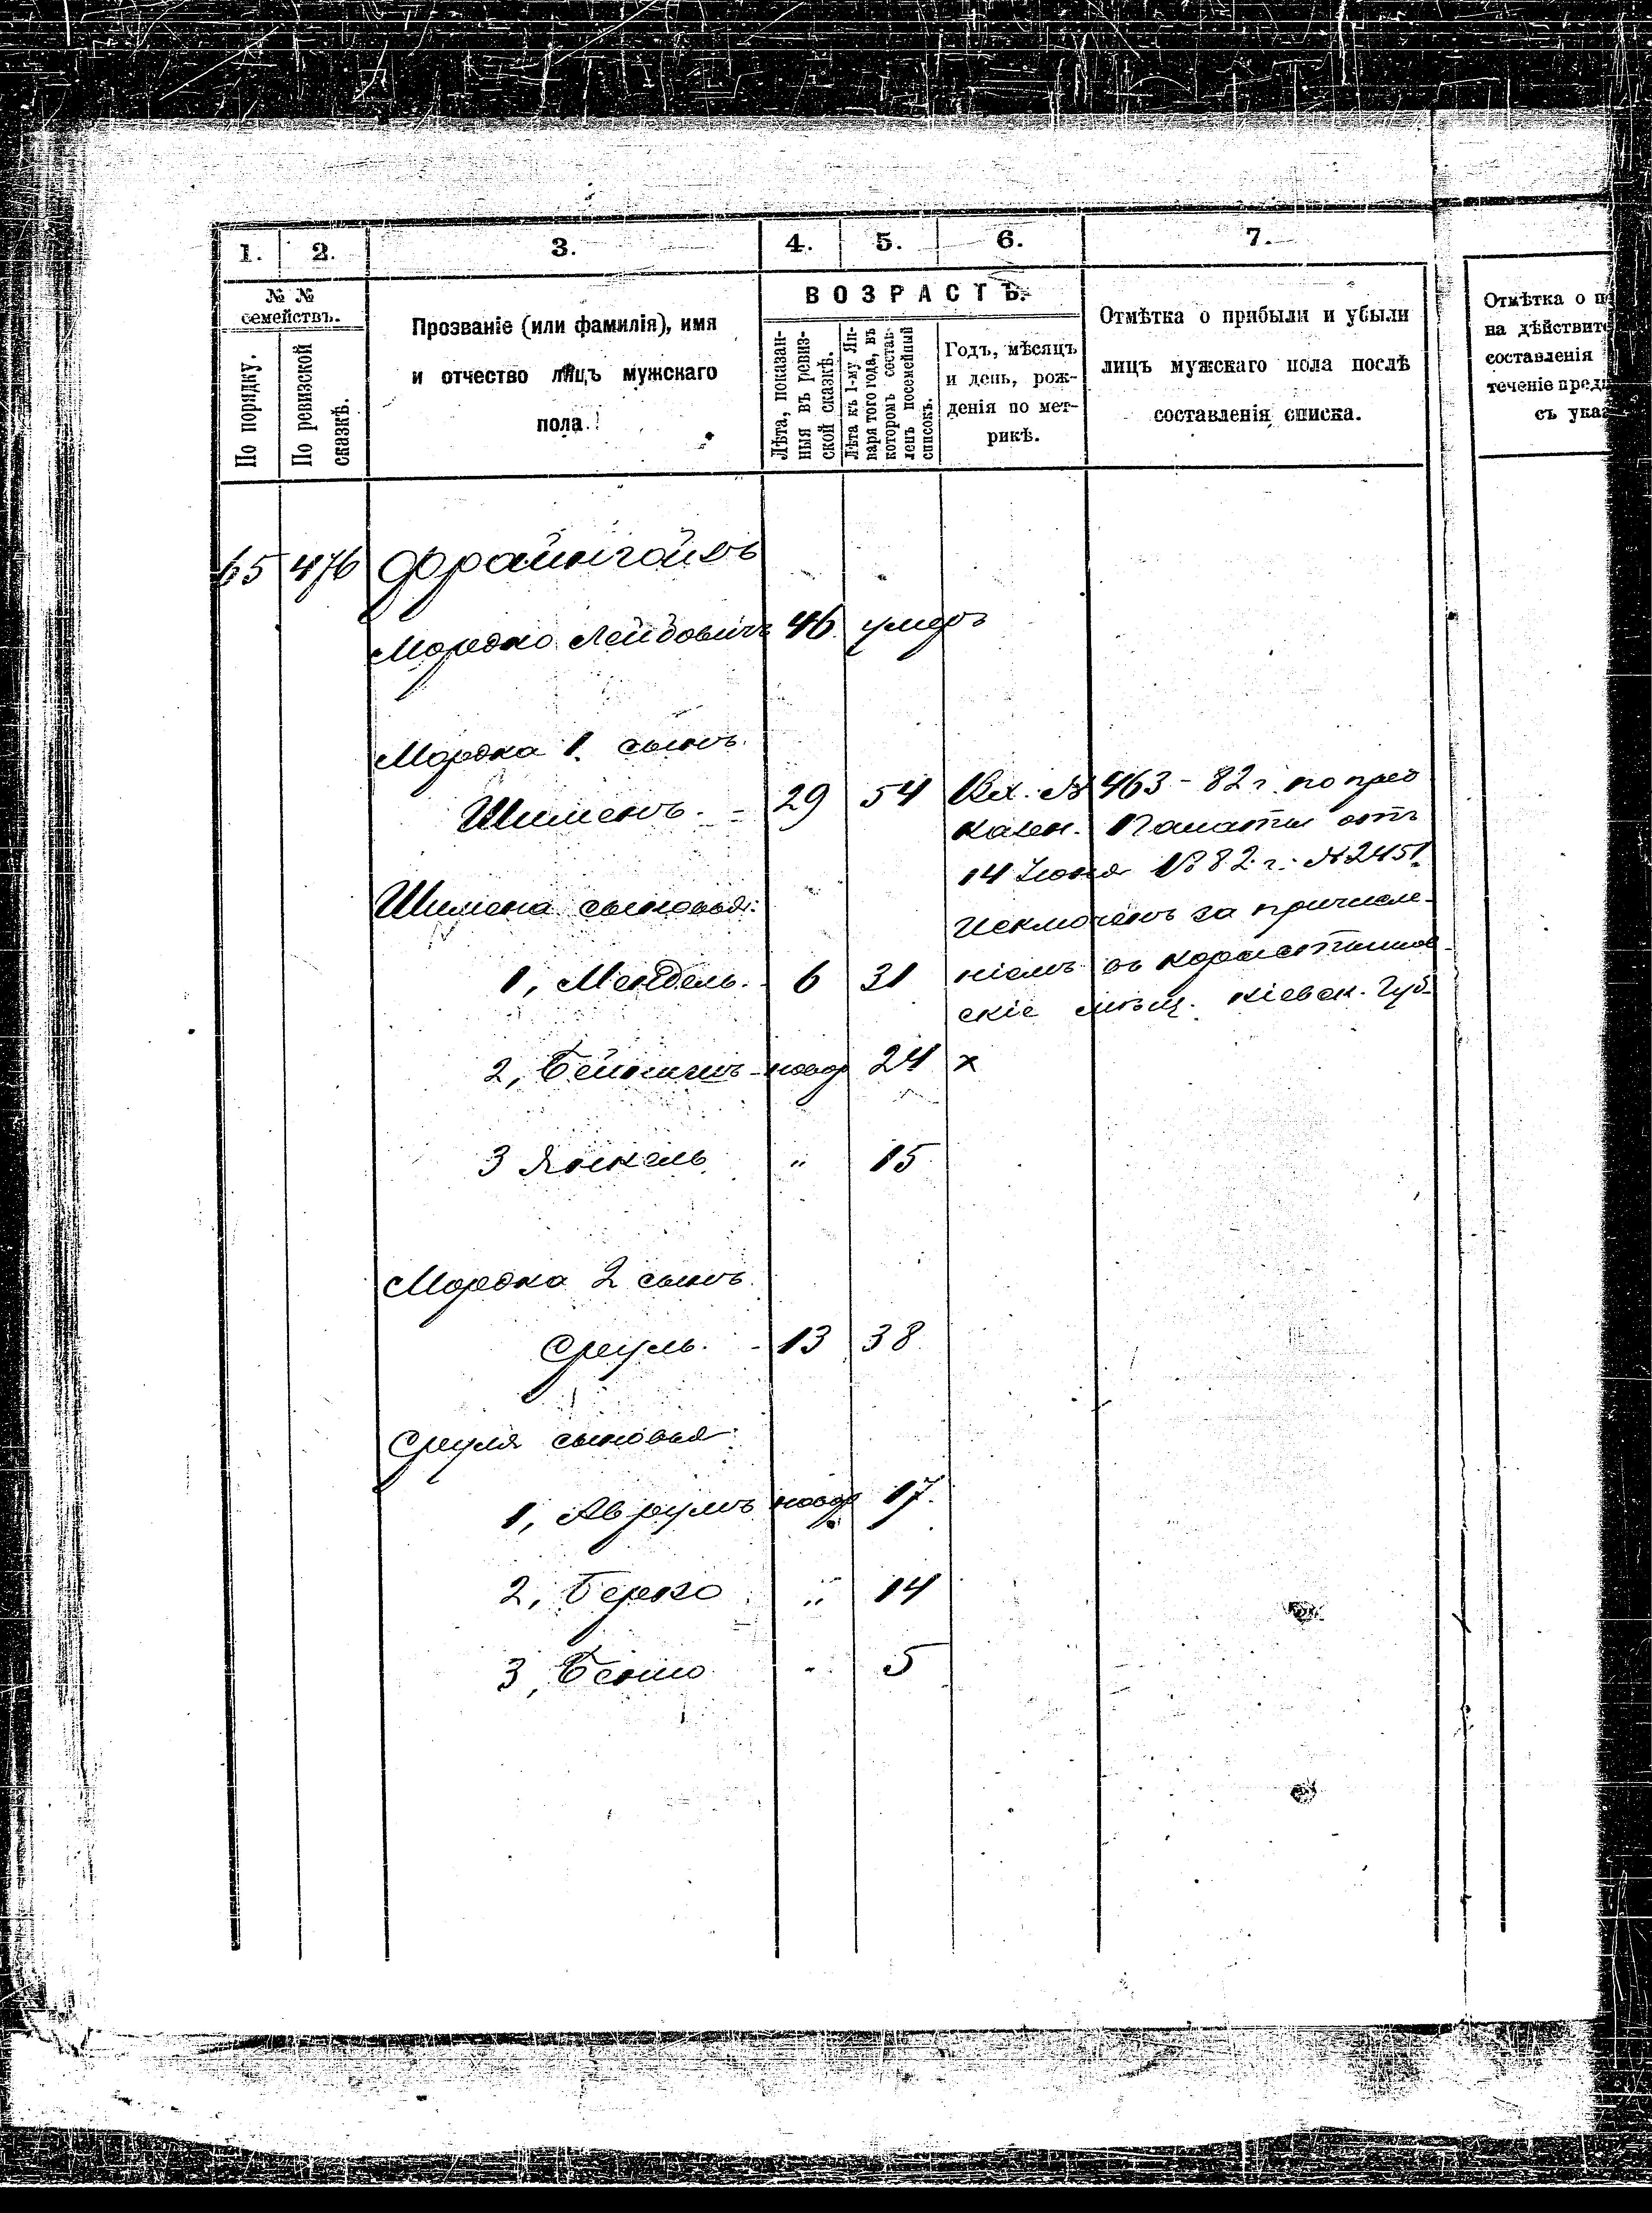 1. 2. 3. 4. 5. 6. 7.
№ №
семействъ.
По порядку.
По ревизской
сказкѣ.
Прозваніе (или фамилія), имя
и отчество лицъ мужскаго
пола.
ВОЗРАСТЪ.
Лѣта, показан-
ныя въ ревиз-
ской сказкѣ.
Лѣта къ 1-му Ян-
варя того года, въ
которомъ состав-
ленъ посемейный
списокъ.
Годъ, мѣсяцъ
и день, рож-
денія по мет-
рикѣ.
Отмѣтка о прибыли и убыли
лицъ мужскаго пола послѣ
составленія списка.
Отмѣтка о
на дѣйствит
составленія
теченіе пред
съ ука
65 476 Фрайнгойзъ
Мордко Лейбовичъ 46 умеръ
Мордка 1. сынъ.
Шименъ. - 29 54 Вх. № 463 - 82 г. по пред
казен. Палаты отъ
14 Іюня 1882 г. № 2451
Шимена сыновья:
исключенъ за причисле-
1, Мендель. - 6 31 ніемъ въ
скіе мѣщ. Кіевск. Губ.
2, новор 24 х
3 Янкель " 15
Мордка 2 сынъ.
Сруль. - 13 38
Сруля сыновья:
1, Аврумъ новор 17.
2, Берко " 14
3, Беньо " 5